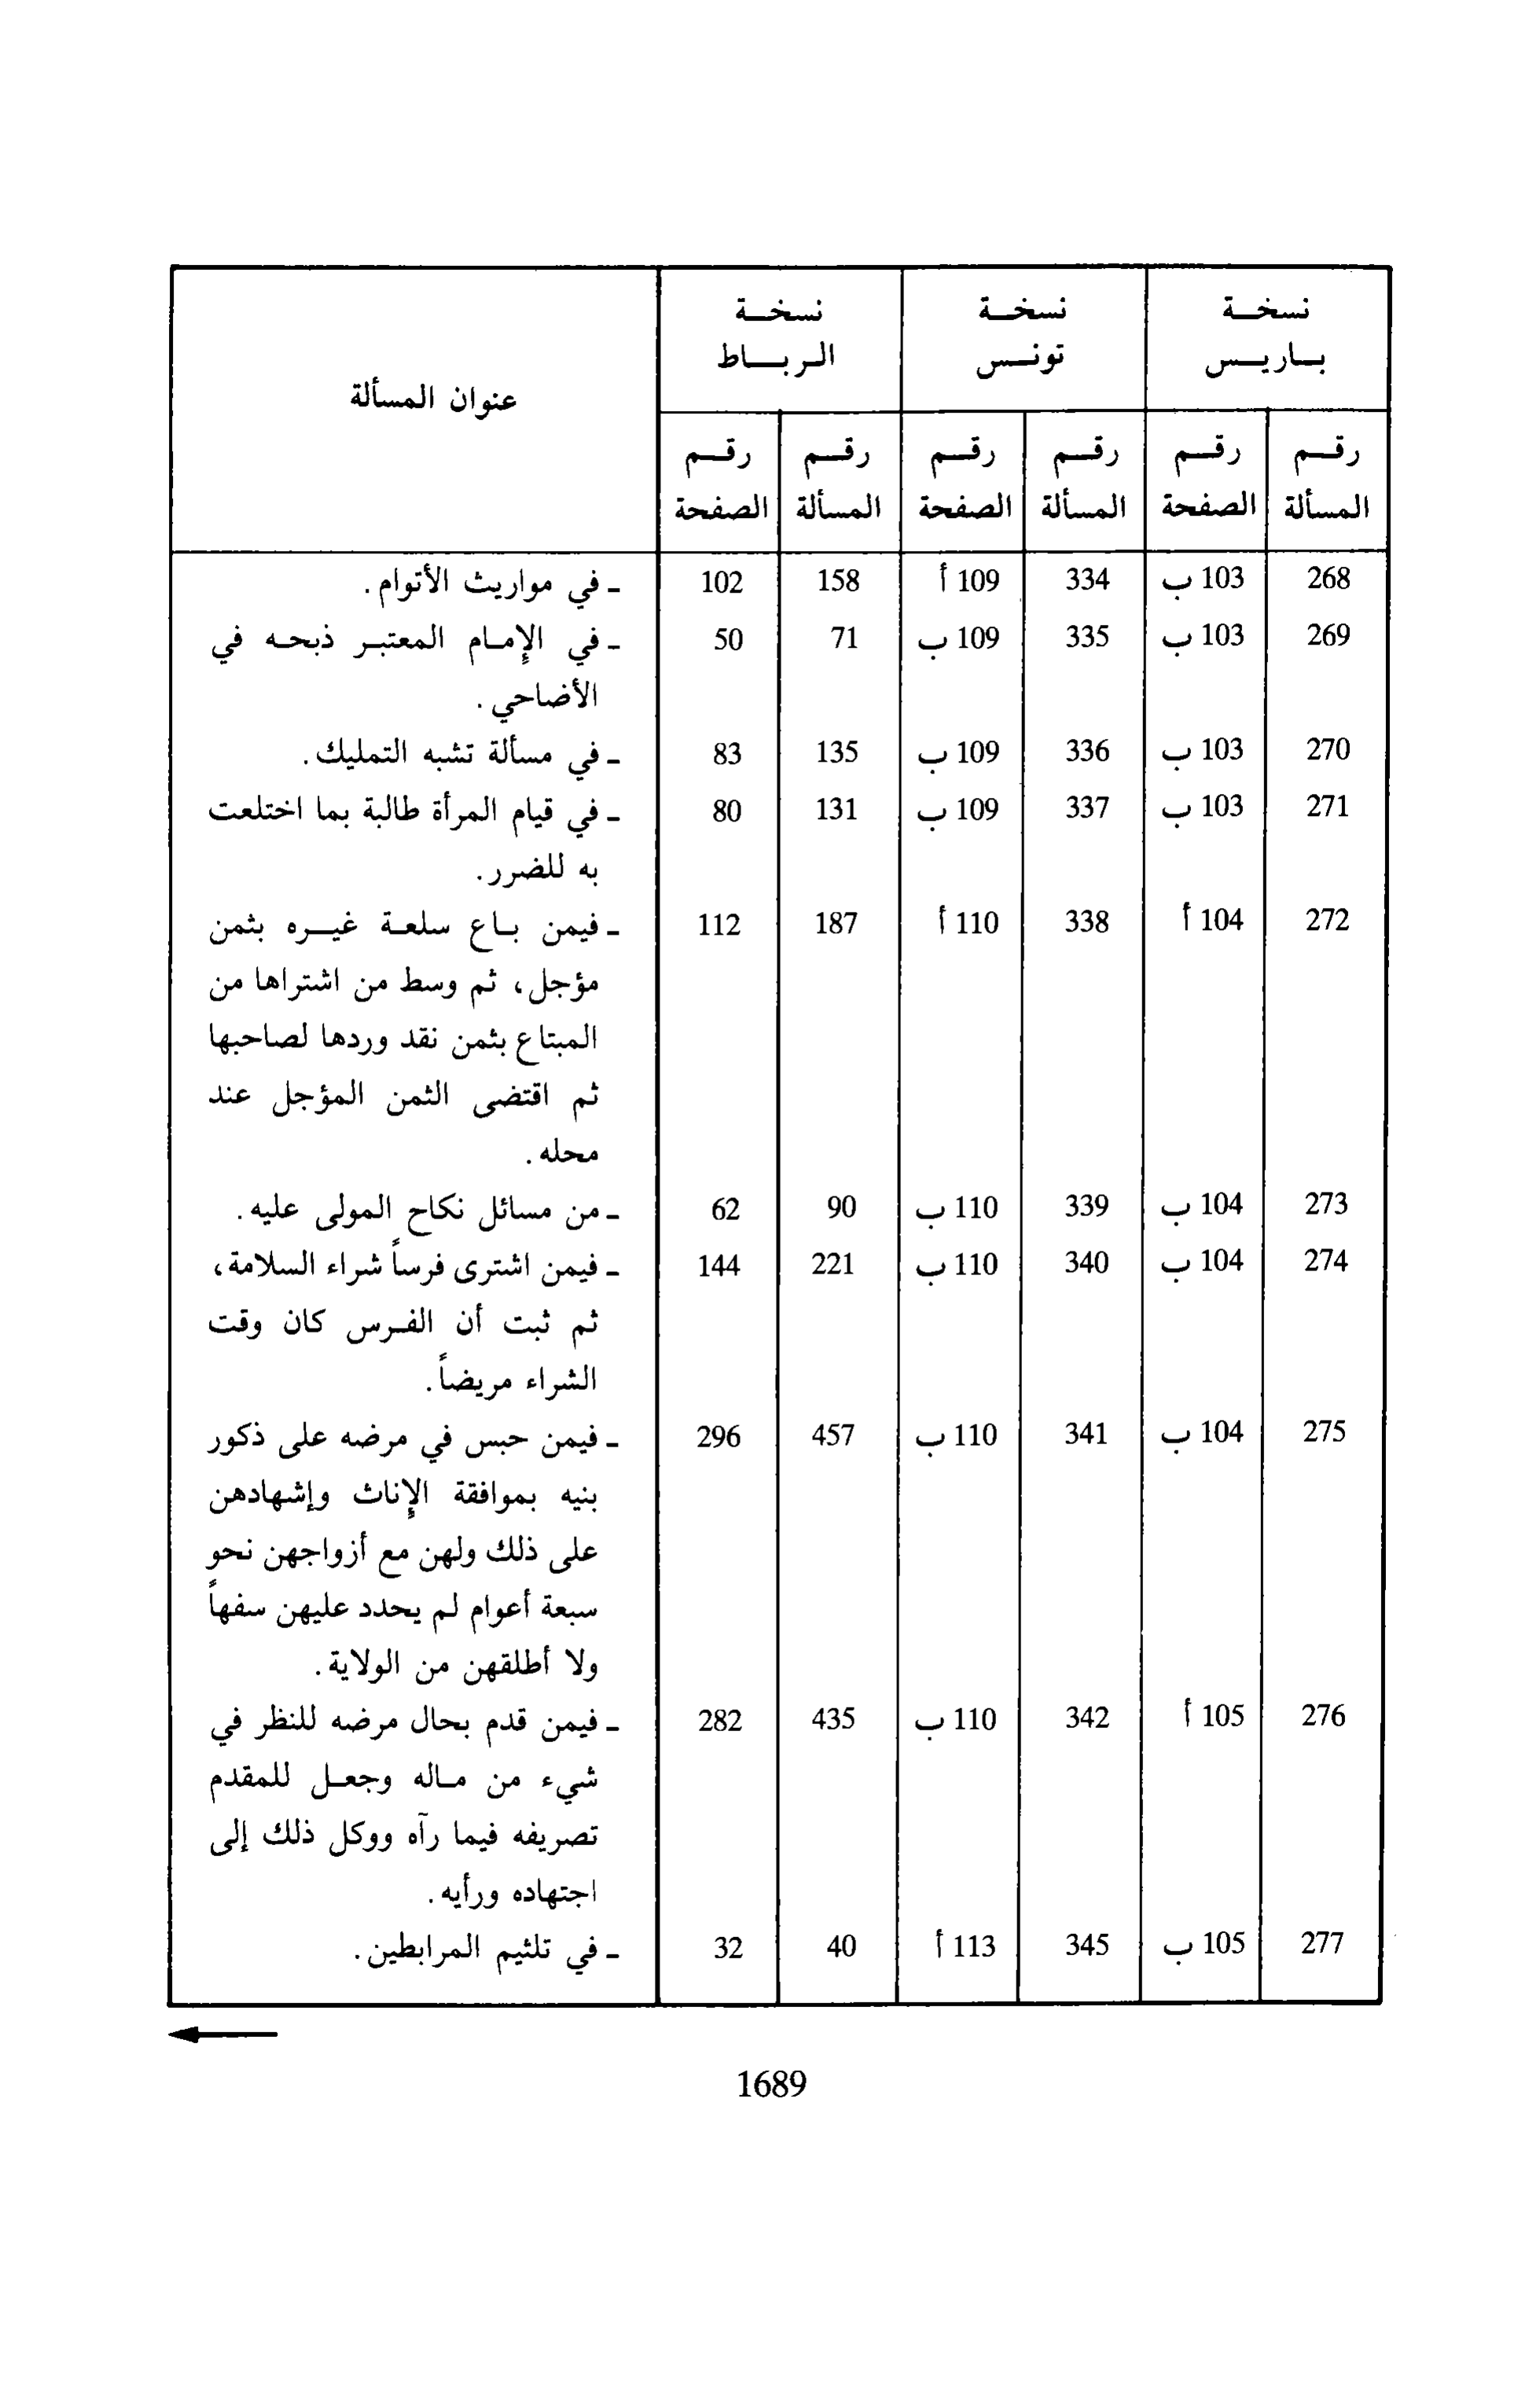 نسخة نسخة نسخة عنوان المسألة
باريس تونس الرباط
رقم رقم رقم رقم رقم رقم
المسألة الصفحة المسألة الصفحة المسألة الصفحة
268 103 ب 334 109 أ 158 102 - في مواريث الأتوام.
269 103 ب 335 109 ب 71 50 - في الإمام المعتبر ذبحه في
الأضاحي.
270 103 ب 336 109 ب 135 83 - في مسألة تشبه التمليك.
271 103 ب 337 109 ب 131 80 - في قيام المرأة طالبة بما اختلعت
به للضرر.
272 104 أ 338 110 أ 187 112 - فيمن باع سلعة غيره بثمن
مؤجل، ثم وسط من اشتراها من
المبتاع بثمن نقد وردها لصاحبها
ثم اقتضى الثمن المؤجل عند
محله.
273 104 ب 339 110 ب 90 62 - من مسائل نكاح المولى عليه.
274 104 ب 340 110 ب 221 144 - فيمن اشترى فرساً شراء السلامة،
ثم ثبت أن الفرس كان وقت
الشراء مريضاً.
275 104 ب 341 110 ب 457 296 - فيمن حبس في مرضه على ذكور
بنيه بموافقة الإناث وإشهادهن
على ذلك ولهن مع أزواجهن نحو
سبعة أعوام لم يحدد عليهن سفهاً
ولا أطلقهن من الولاية.
276 105 أ 342 110 ب 435 282 - فيمن قدم بحال مرضه للنظر في
شيء من ماله وجعل للمقدم
تصريفه فيما رآه ووكل ذلك إلى
اجتهاده ورأيه.
277 105 ب 345 113 أ 40 32 - في تلثيم المرابطين.
1689